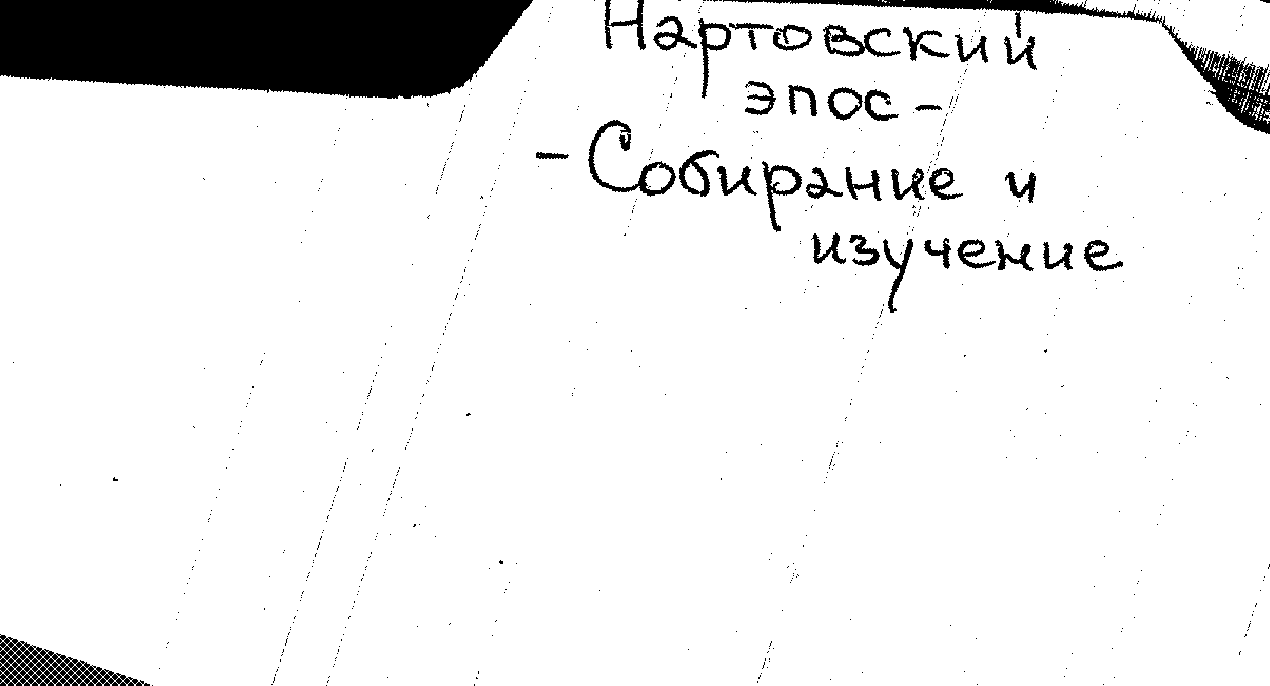 Нартовский
эпос -
- Собирание и
изучение